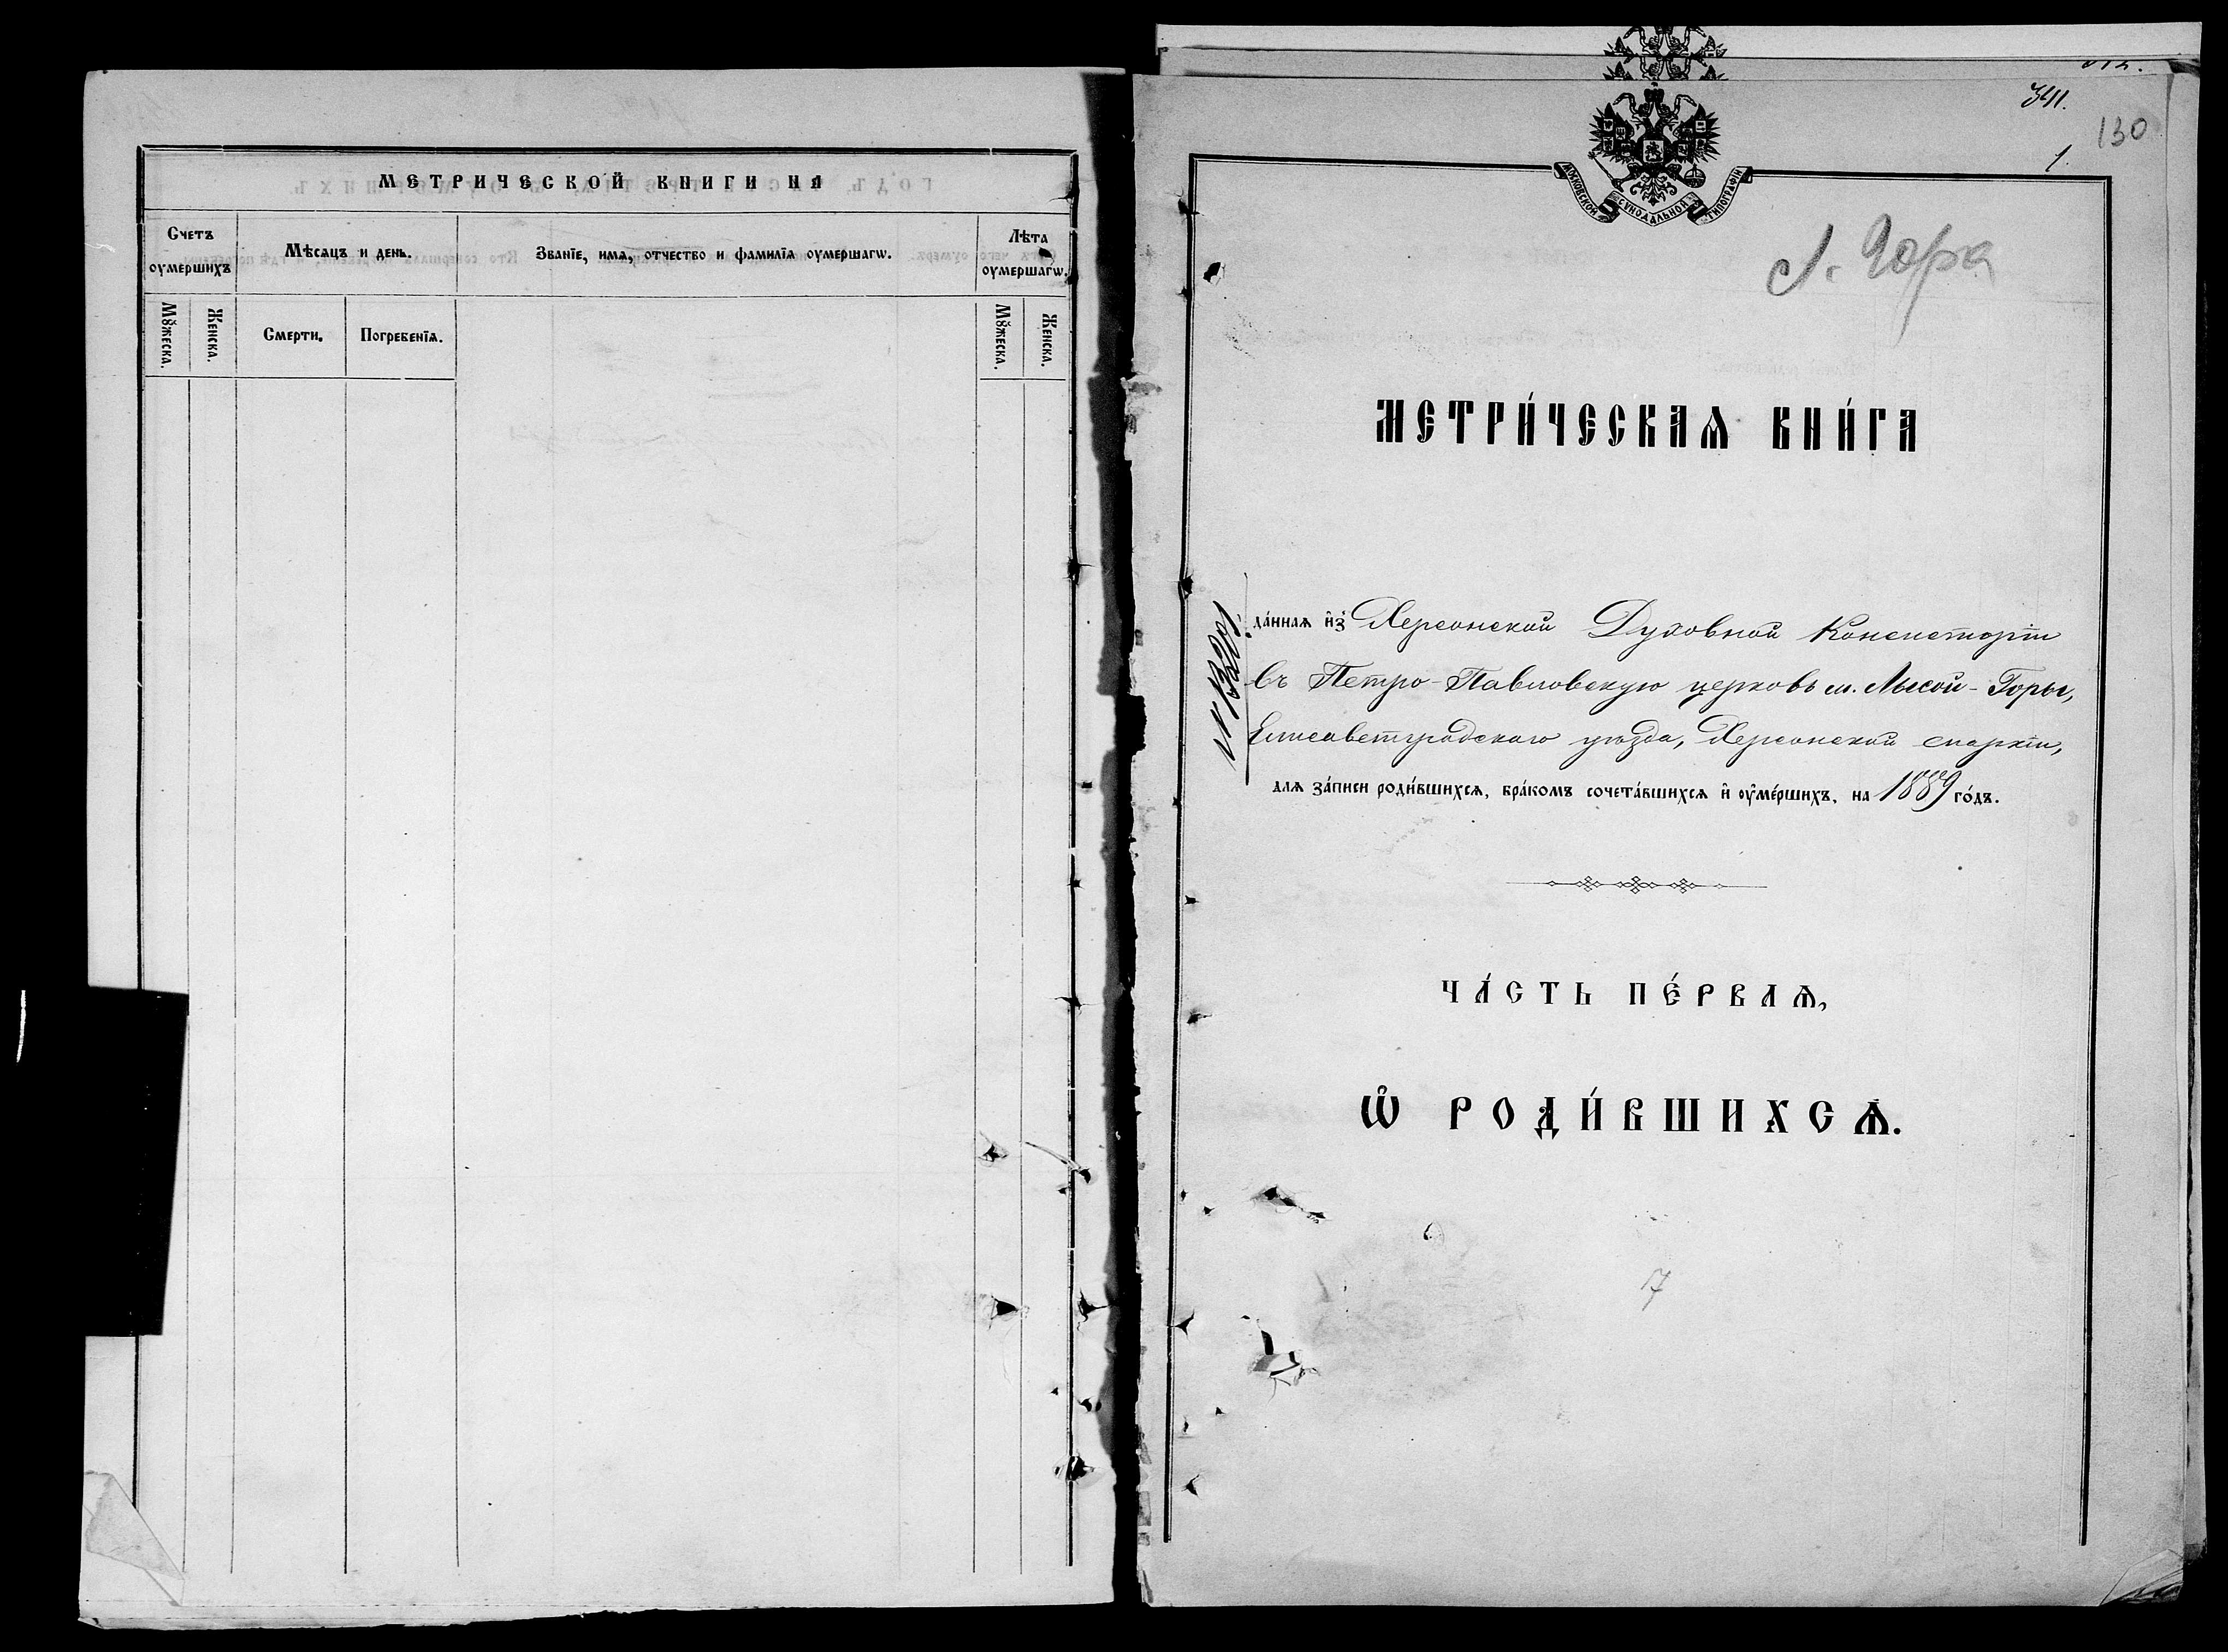 МЕТРИЧЕСКОЙ КНИГИ НА
Счетъ оумершихъ
Мѣсяцъ и день.
Званїе, имя, отчество и фамилїя оумершагѡ.
Лѣта оумершагѡ.
Мꙋжеска.
Женска.
Смерти.
Погребенїѧ.
Мꙋжеска.
Женска.
341.
130
1.
МОСКОВСКОЙ СѴНОДАЛЬНОЙ ТИПОГРАФІИ
Л. Гора
МЕТРИ́ЧЕСКАѦ КНИ́ГА
№ 13201.
да́нная и҆з̾ Херсонской Духовной Консисторіи
въ Петро-Павловскую церковь м. Лысой-Горы,
Елисаветградскаго уѣзда, Херсонской епархіи,
для за́писи роди́вшихся, бра́комъ сочета́вшихся и҆ оу҆ме́ршихъ, на 1889 го́дъ.
ЧА́СТЬ ПЕ́РВАѦ,
Ѽ РОДИ́ВШИХСѦ.
17